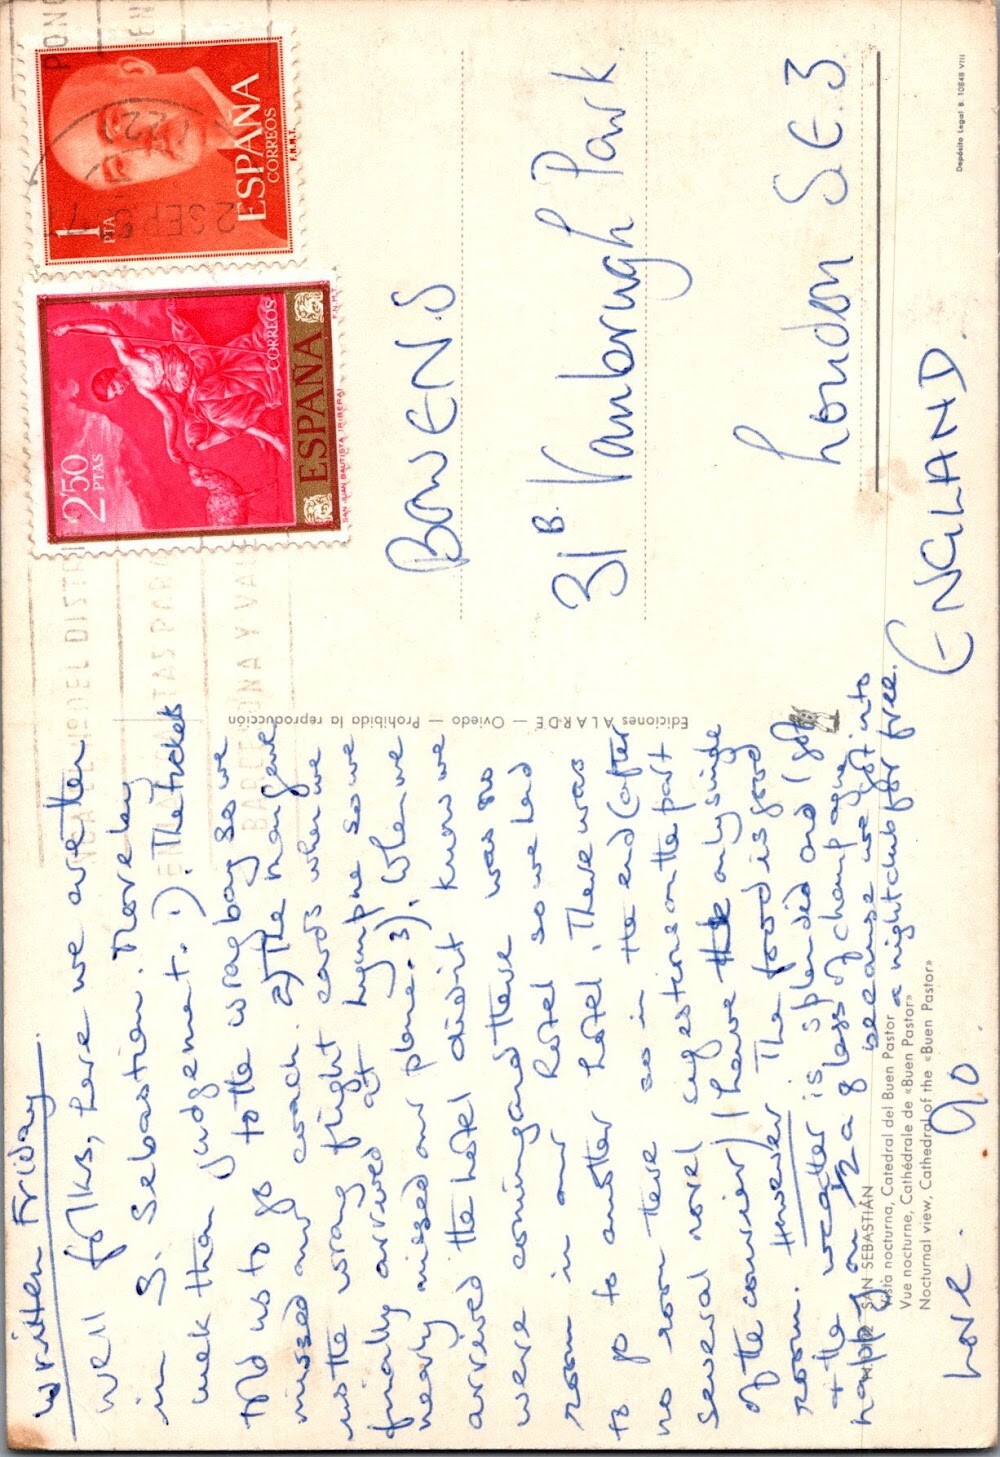 Written Friday.
Well folks, here we are then
in S. Sebastian. More by
luck than judgement. 1). The tickets
told us to go to the wrong bay so we
missed our coach. 2) The man gave
us the wrong flight cards when we
finally arrived at Lympne so we
nearly missed our plane. 3). When we
arrived the hotel didn't know we
were coming and there was no
room in our hotel so we had
to go to another hotel. There was
no room there so in the end (after
several novel suggestions on the part
of the courier) I have the only single
room. However The food is good
+ the weather is splendid and I got
happy on ½ a glass of champagne
because we got into
a nightclub for free.
Love. Jo
BOWENS
31B. Vanbrurgh Park
London S.E.3
(ENGLAND.
1
PTA
ESPAÑA
CORREOS
F.N.M.T.
2'50
PTAS
CORREOS
ESPAÑA
SAN JUAN BAUTISTA (RIBERA)
2 SEP
Ediciones ALARDE — Oviedo — Prohibida la reproducción
SAN SEBASTIÁN
Vista nocturna, Catedral del Buen Pastor
Vue nocturne, Cathédrale de «Buen Pastor»
Nocturnal view, Cathedral of the «Buen Pastor»
Depósito Legal B. 10848 VIII